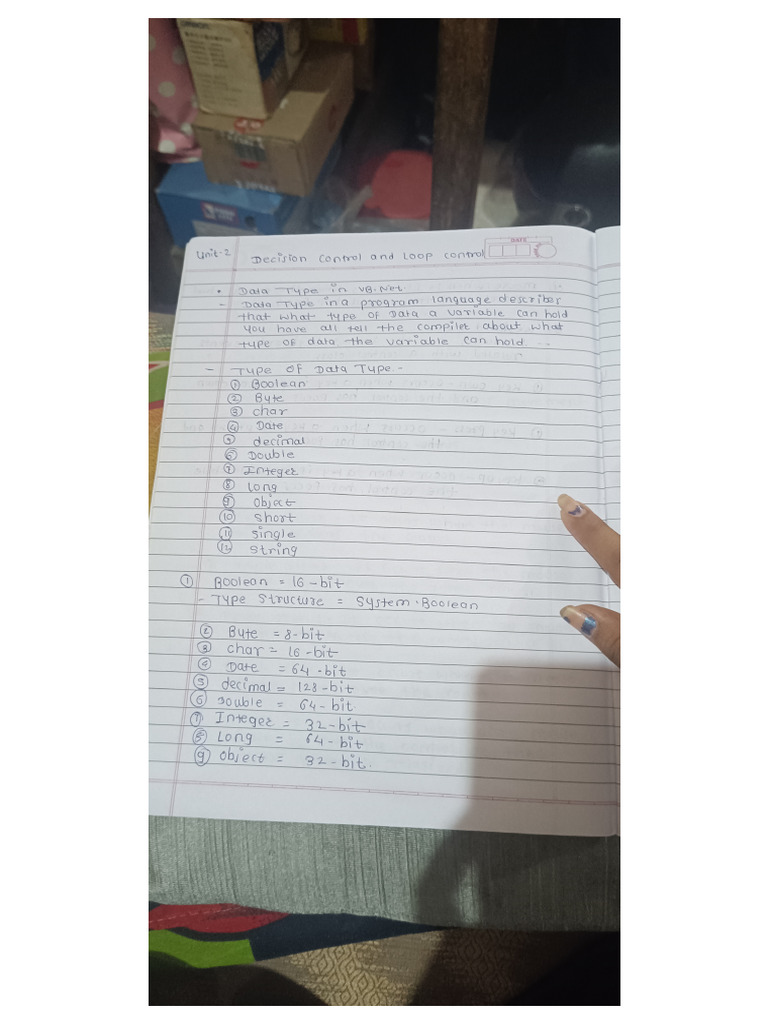 Unit-2 Decision Control and Loop control
DATE
• Data Type in VB.Net
- Data Type in a program language describer
that what type of Data a variable can hold
you have all tell the compilet about what
type of data the variable can hold --
- Type of Data Type.-
① Boolean
② Byte
③ char
④ Date
⑤ decimal
⑥ Double
⑦ Integer
⑧ Long
⑨ Object
⑩ Short
⑪ Single
⑫ String
① Boolean = 16-bit
- Type Structure = System.Boolean
② Byte = 8-bit
③ char = 16-bit
④ Date = 64-bit
⑤ decimal = 128-bit
⑥ Double = 64-bit.
⑦ Integer = 32-bit
⑧ Long = 64-bit
⑨ Object = 32-bit.